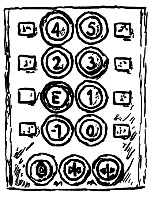 4 5
2 3
E 1
-1 0